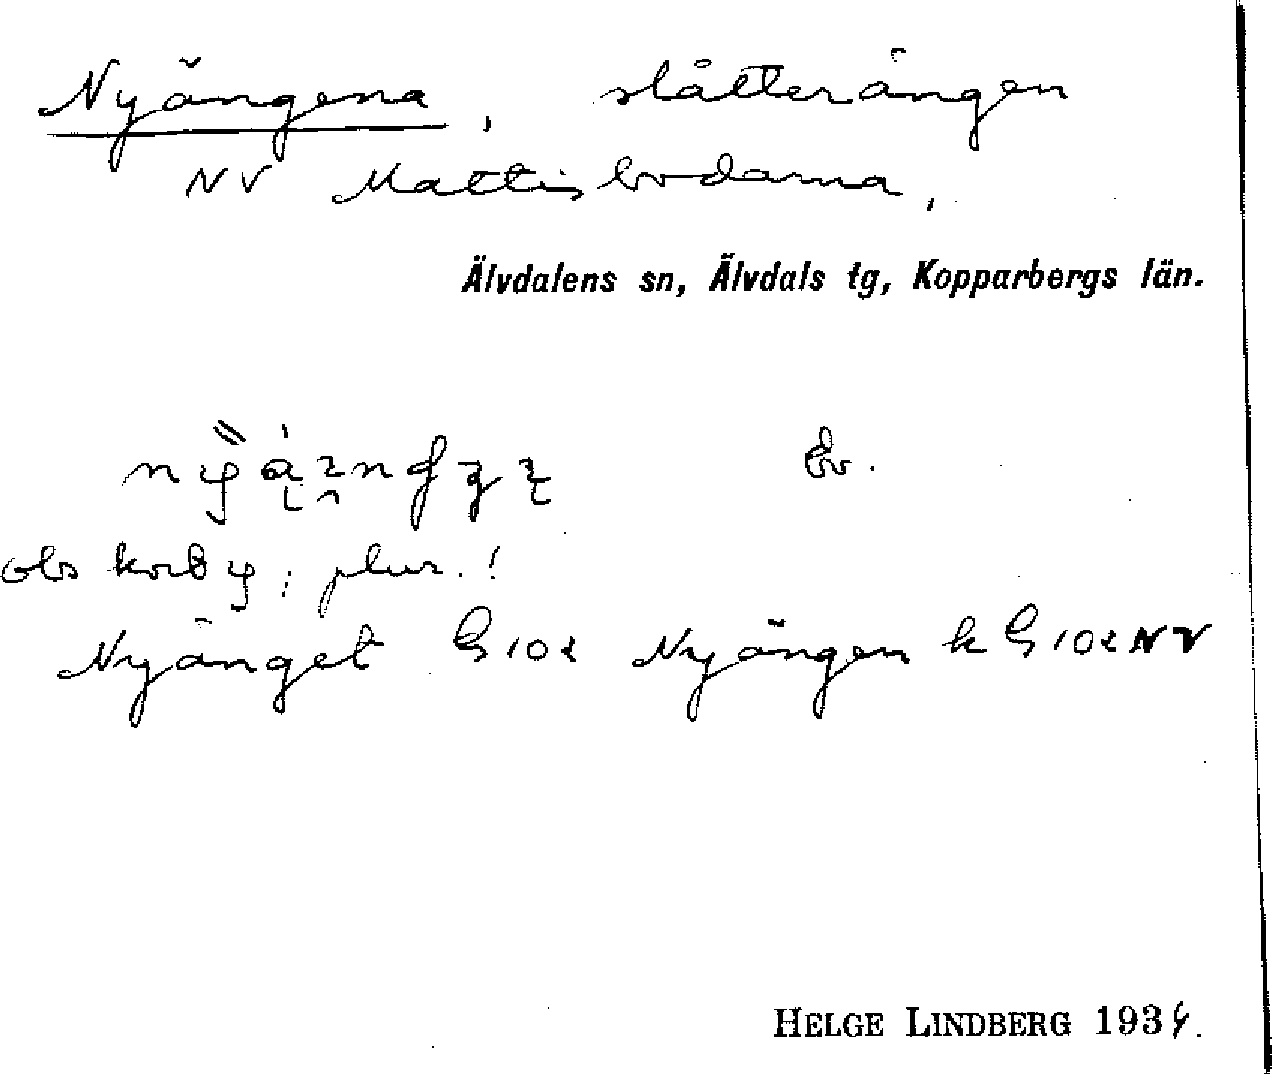 Nyängena, slåtterängen
NV Mattisbodarna,
Älvdalens sn, Älvdals tg, Kopparbergs län.
bv.
obs kort y; plur.!
Nyänget G 102 Nyängen k G 102 NV
HELGE LINDBERG 1934.